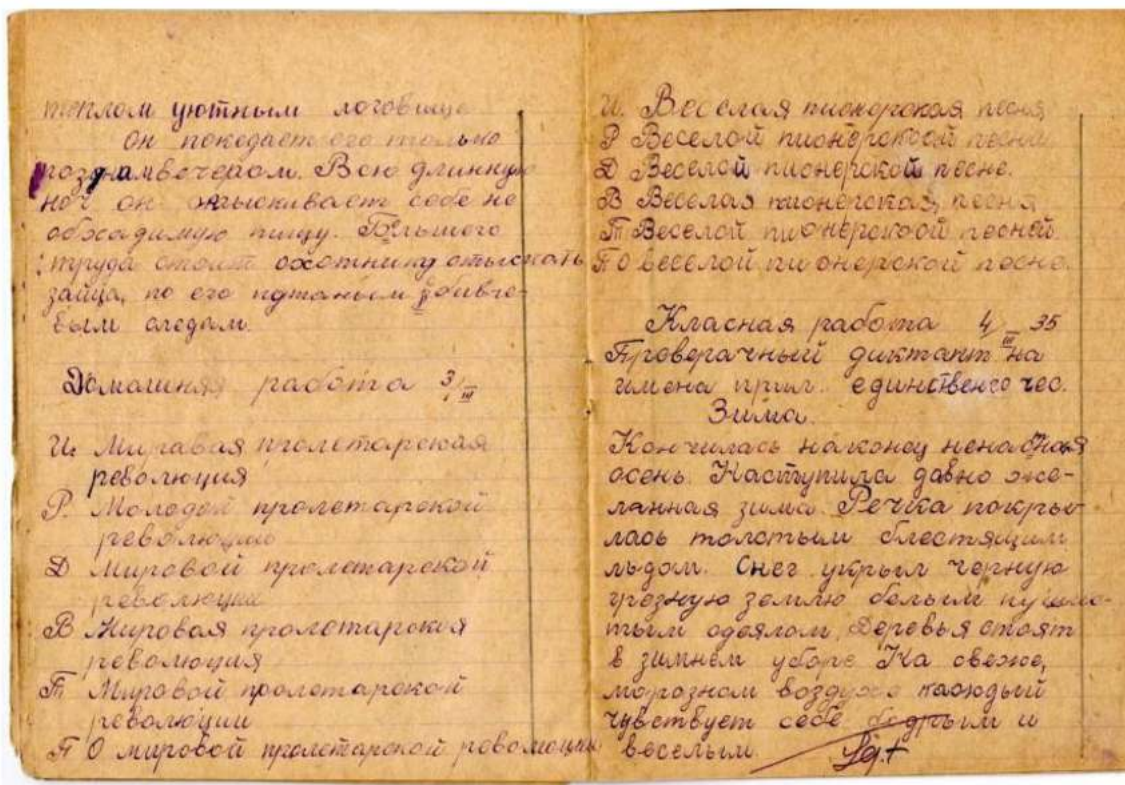 теплом уютным логовище
он покедает его только
позднамвечером. Всю длинную
ноч он отыскивает себе не
обхадимую пищу. Большего
труда стоит охотнику отыскать
зайца, по его
следам.
Домашняя работа 3/III
И. Миравая пролетарская
революция
Р. Молодой пролетарской
революцию
Д Мировой пролетарской
революции
В Мировая пролетарския
революция
Т Мировой пролетарской
революции
П О мировой пролетарской революции
И. Веселая пионерская песня
Р Веселой пионерской песни
Д Веселой пионерской песне.
В Веселая пионерская, песня
Т Веселой пионерской песней.
П О веселой пионерской песне.
Класная работа 4/III 35
Проверачный диктант на
имена прил. единственго чес.
Зима.
Кончилась наконец ненастная
осень. Наступила давно же-
ланная зима. Речка покры
лась толстым блестящим
льдом. Снег укрыл черную
грезную землю белым пушис-
тым одеялом. Деревья стоят
в зимнем уборе На свеже,
морозном воздухе каождый
чувствует себе бодрым и
веселым.